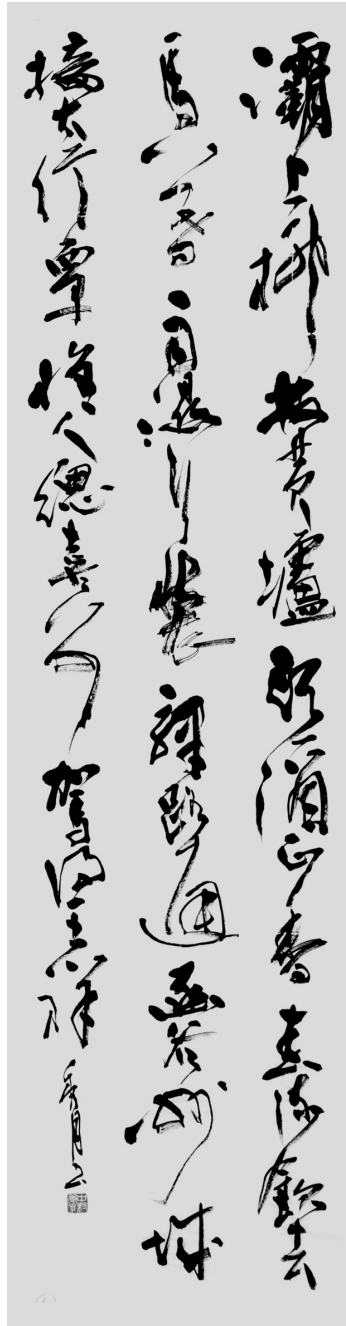 灞上柳枝黄壚頭酒正香春流飲去
馬暮雨濕行裝驛路通函谷州城
接太行覃懷人總喜別駕得王祥